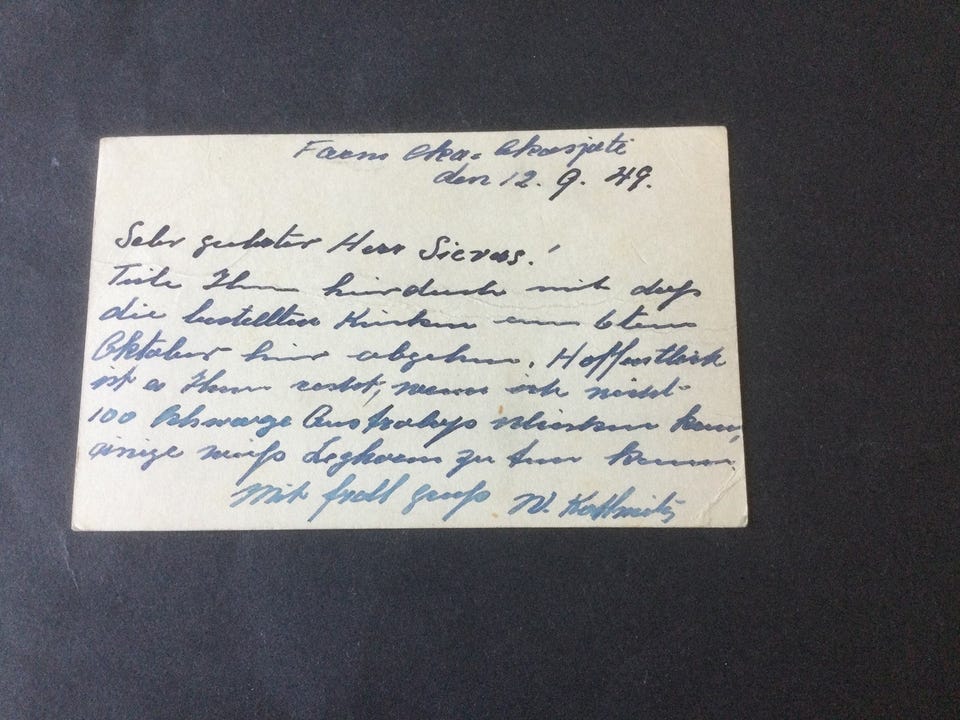 Farm Oka-Okasjuti
den 12. 9. 49.
Sehr geehrter Herr Sievers!
Teile Ihnen hierdurch mit daß
die bestellten Kücken am 6ten
Oktober hier abgehen. Hoffentlich
ist es Ihnen recht, wenn ich nicht
100 Schwarze Australops schicken kann,
einige weiß Leghorns zu tun kann.
Mit frdl gruß W.